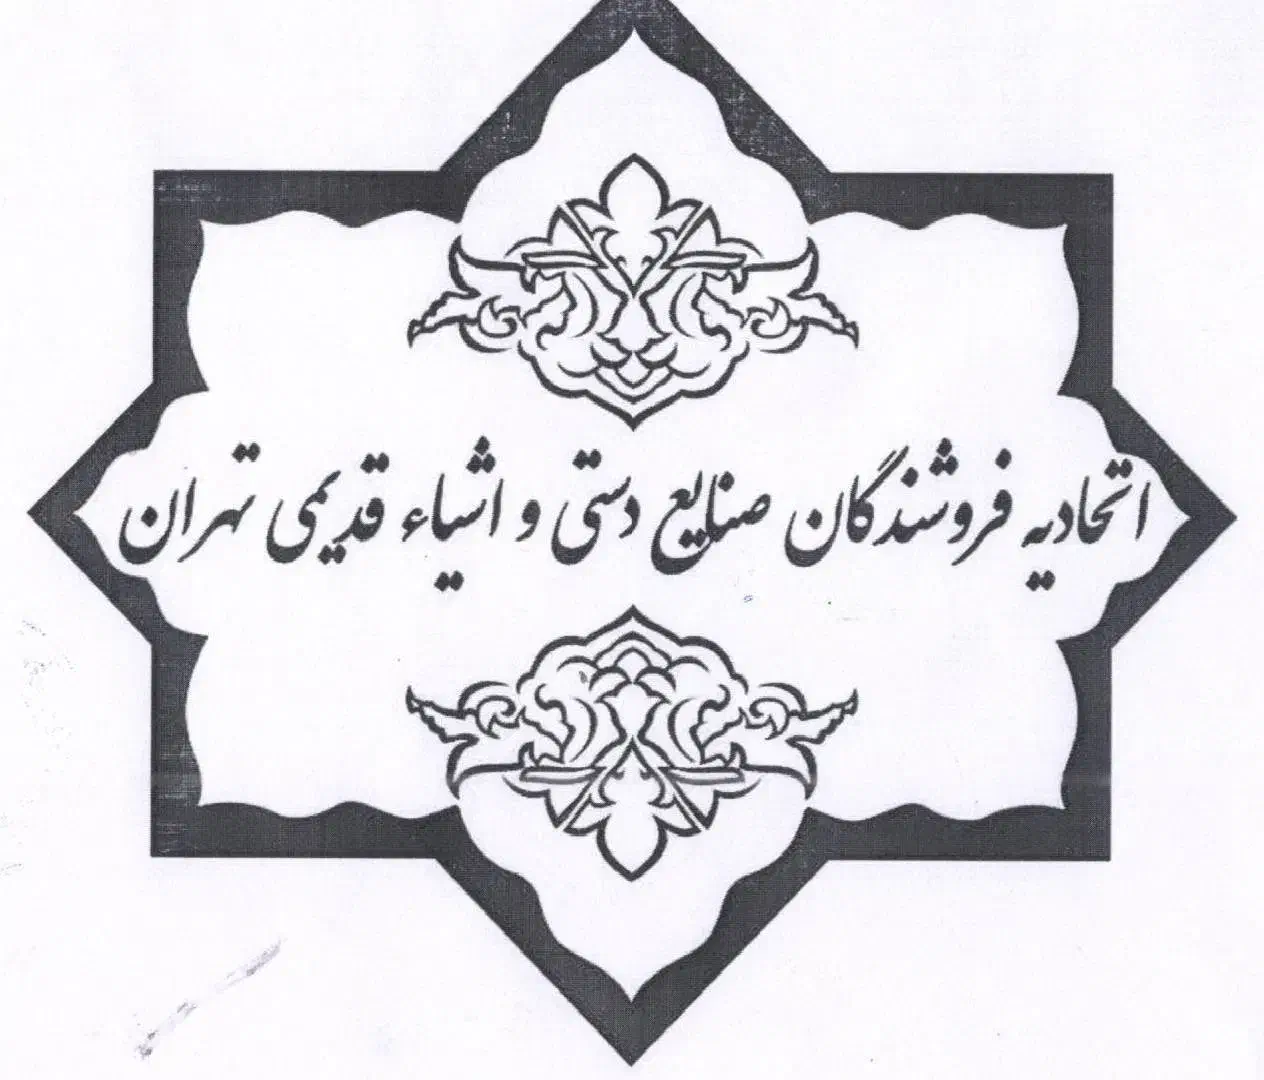 اتحادیه فروشندگان صنایع دستی و اشیاء قدیمی تهران